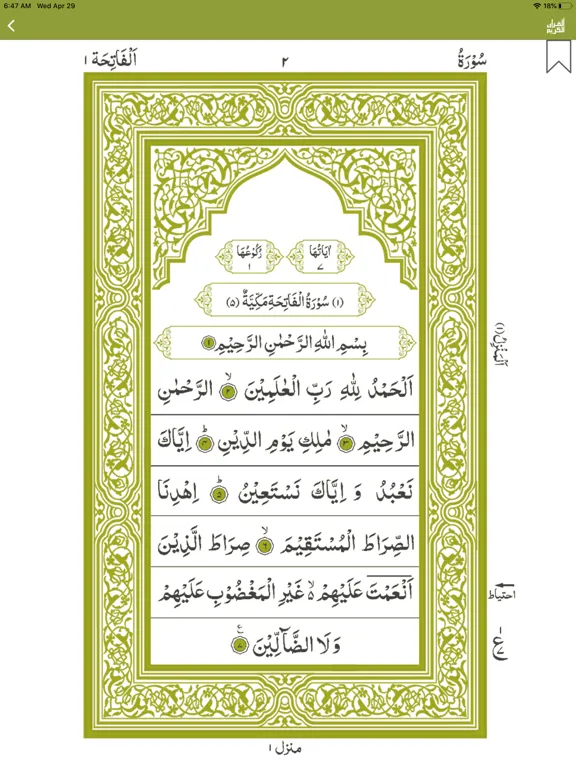 6:47 AM Wed Apr 29 18%
القرآن الكريم
سُوْرَةُ ٢ اَلْفَاتِحَة ١
اٰيَاتُهَا ٧ رُكُوْعُهَا ١
(١) سُوْرَةُ الْفَاتِحَةِ مَكِّيَّةٌ (٥)
بِسْمِ اللّٰهِ الرَّحْمٰنِ الرَّحِيْمِ ١
اَلْحَمْدُ لِلّٰهِ رَبِّ الْعٰلَمِيْنَ ۙ ٢ الرَّحْمٰنِ
الرَّحِيْمِ ۙ ٣ مٰلِكِ يَوْمِ الدِّيْنِ ؕ ٤ اِيَّاكَ
نَعْبُدُ وَ اِيَّاكَ نَسْتَعِيْنُ ؕ ٥ اِهْدِنَا
الصِّرَاطَ الْمُسْتَقِيْمَ ۙ ٦ صِرَاطَ الَّذِيْنَ
اَنْعَمْتَ عَلَيْهِمْ ۙ۬ غَيْرِ الْمَغْضُوْبِ عَلَيْهِمْ
وَلَا الضَّآلِّيْنَ ٧ ع
اَلْمَنْزِلُ (١)
احتیاط
ع ٧
منزل ١